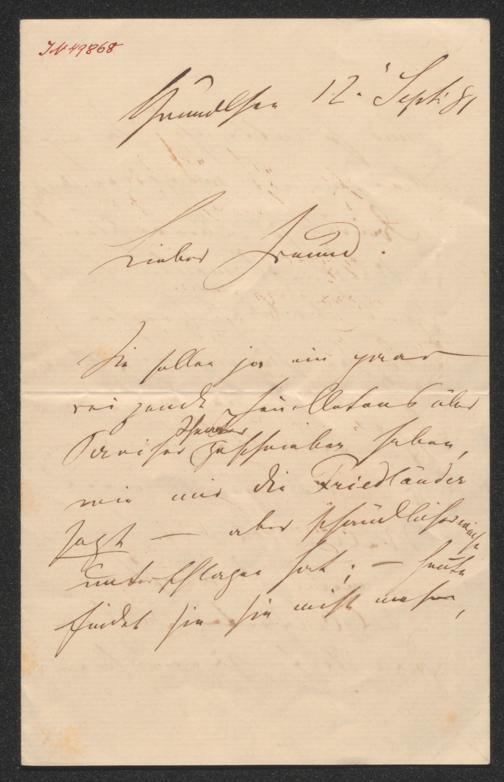 IN 49868
Grundlsee 12. Sept. 81
Lieber Freund.
Sie sollen ja ein paar
reizende Feuilletons über
Pariser Theater geschrieben haben,
wie mir die Friedländer
sagt — aber schändlicherweise
unterschlagen hat; — heute
findet sie sie nicht mehr,